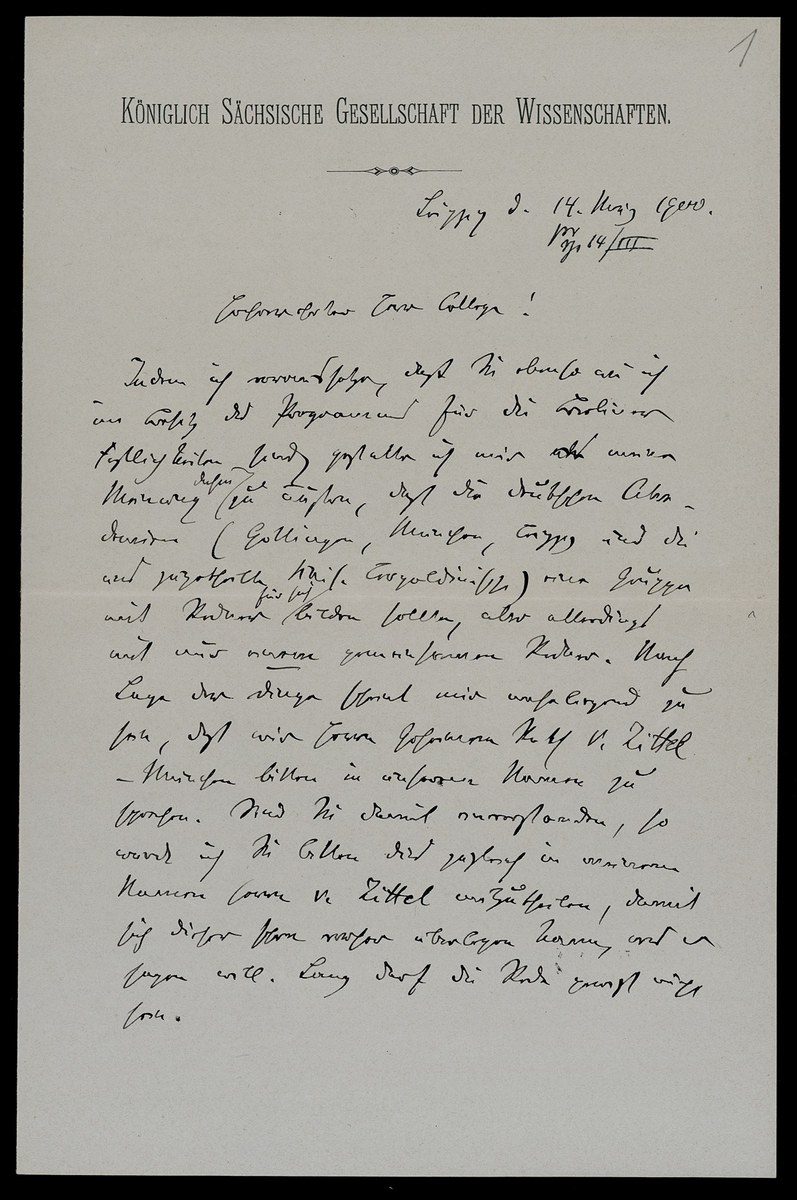 1
KÖNIGLICH SÄCHSISCHE GESELLSCHAFT DER WISSENSCHAFTEN.
Leipzig d. 14. März 1900.
14/III
Hochverehrter Herr College!
Indem ich voraussetze, daß Sie ebenso wie ich
im Besitz des Programms für die Berliner
Festlichkeiten sind, gestatte ich mir meine
Meinung dahin zu äußern, daß die deutschen Aka-
demien (Göttingen, München, Leipzig und die
Leopoldinische) eine Gruppe
mit Redner für sich bilden sollten, aber allerdings
mit nur einem gemeinsamen Redner. Nach
Lage der Dinge scheint mir naheliegend zu
sein, daß wir Herrn Geheimen Rath v. Zittel
- München bitten in unserem Namen zu
sprechen. Sind Sie damit einverstanden, so
würde ich Sie bitten dies zugleich in meinem
Namen Herrn v. Zittel mitzutheilen, damit
sich dieser schon vorher überlegen kann, was er
sagen will. Lang darf die Rede gewiß nicht
sein.